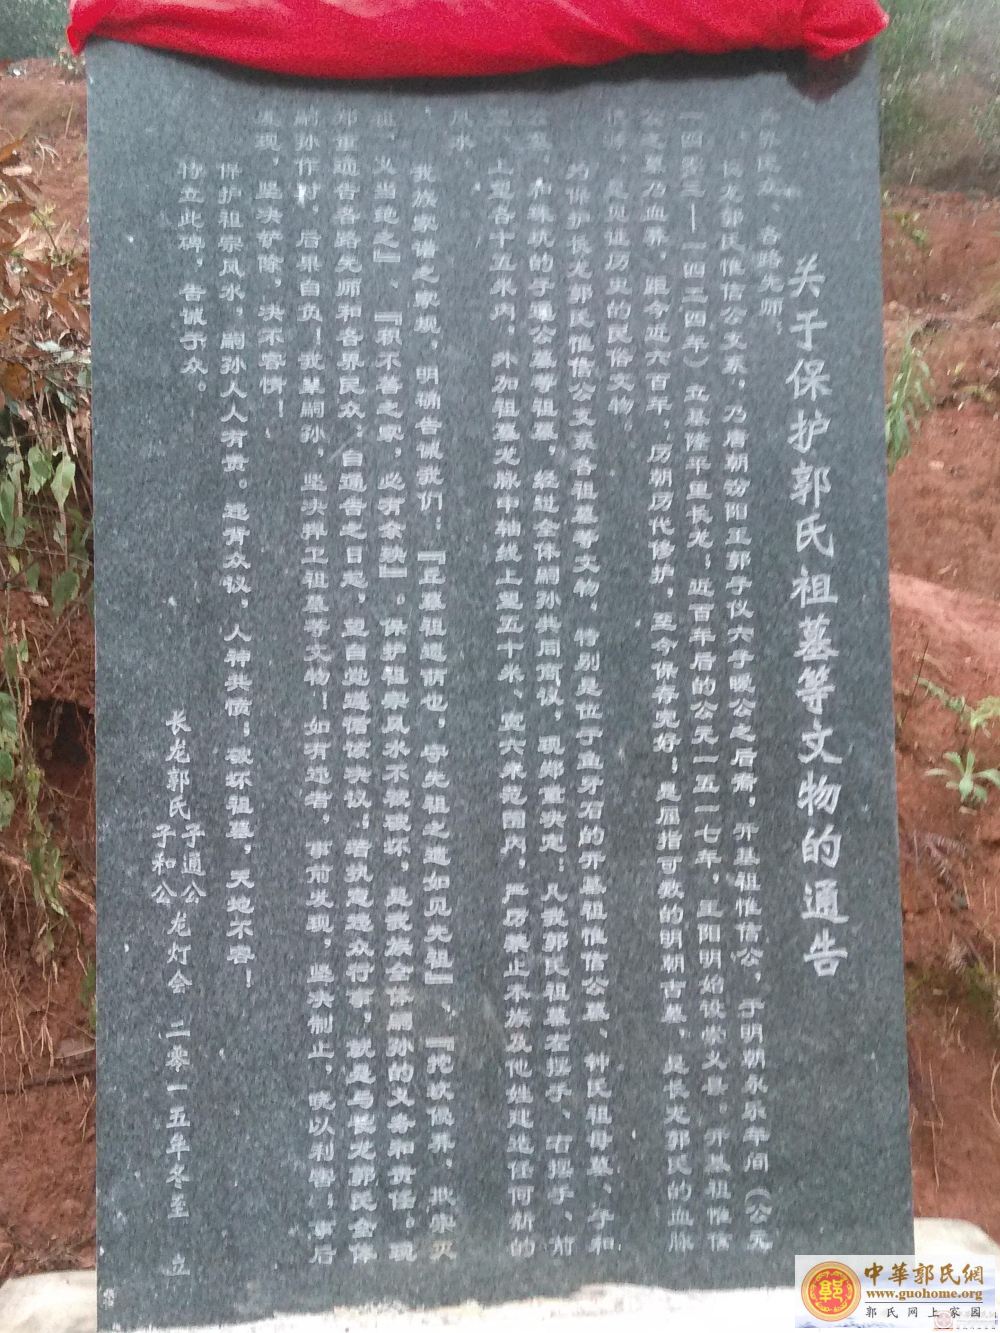 关于保护郭氏祖墓等文物的通告
各界民众、各路先师:
长龙郭氏惟信公支系,乃唐朝汾阳王郭子仪六子暧公之后裔,开基祖惟信公,于明朝永乐年间(公元
一四零三——一四二四年)立墓隆平里长龙;近百年后的公元一五一七年,王阳明始设崇义县。开基祖惟信
公之墓乃血葬,距今近六百年,历朝历代修护,至今保存完好;是屈指可数的明朝古墓、是长龙郭氏的血脉
,是见证历史的民俗文物。
为保护长龙郭氏惟信公支系各祖墓等文物,特别是位于鱼身石的开基祖惟信公墓、钟氏祖母墓、子和
公墓,和坑的子通公墓等祖墓,经过全体嗣孙共同商议,现郑重决定:凡我郭氏祖墓左摆手、右摆手、前
上至各十五米内,外加祖墓龙脉中轴线上至五十米、宽六米范围内,严厉禁止本族及他姓建造任何新的
风水。
我族家谱之家规,明确告诫我们:『丘墓祖遗荫也,守先祖之遗如见先祖』、『挖坟侵葬、欺宗灭
祖,义当绝之』、『积不善之家,必有余殃』。保护祖宗风水不被破坏,是我族全体嗣孙的义务和责任。现
郑重通告各路先师和各界民众:自通告之日起,望自觉遵信该决议;若执意违众行事,就是与长龙郭氏全体
嗣孙作对,后果自负!我辈嗣孙,坚决捍卫祖墓等文物!如有违者,事前发现,坚决制止,晓以利害;事后
发现,坚决铲除,决不容情!
保护祖宗风水,嗣孙人人有责。违背众议,人神共愤;破坏祖墓,天地不容!
特立此碑,告诫于众。
长龙郭氏子通公
子和公龙灯会 二零一五年冬至 立
中華郭氏網
www.guohome.org
郭氏网上家园